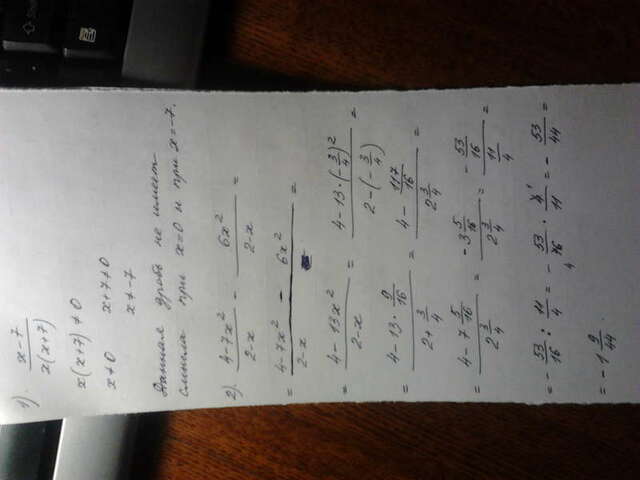 1). (x-7)/(x(x+7))
x(x+7)≠0
x≠0 x+7≠0
x≠-7
Данная дробь не имеет
смысла при x=0 и при x=-7.
2). (4-7x²)/(2-x) - (6x²)/(2-x) =
= (4-7x² - 6x²)/(2-x) =
= (4-13x²)/(2-x) = (4-13·(-3/4)²)/(2-(-3/4)) =
= (4-13·9/16)/(2+3/4) = (4-117/16)/(2 3/4) =
= (4-7 5/16)/(2 3/4) = (-3 5/16)/(2 3/4) = (-53/16)/(11/4) =
= -53/16 : 11/4 = -53/16 · 4/11 = -53/44 =
= -1 9/44.